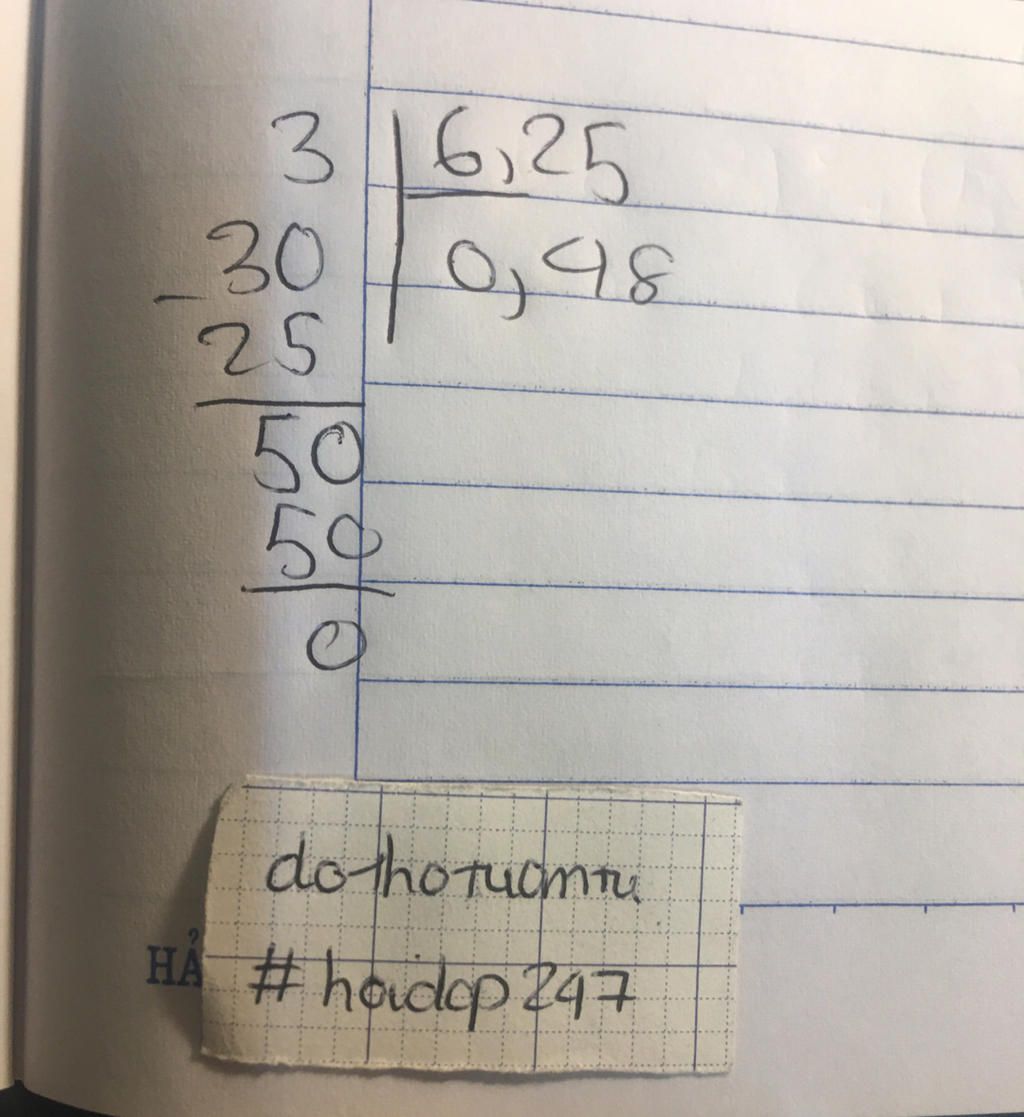 3 6,25
- 30 0,48
25
50
50
0
dothotuantu
#hoidap247
HẢ